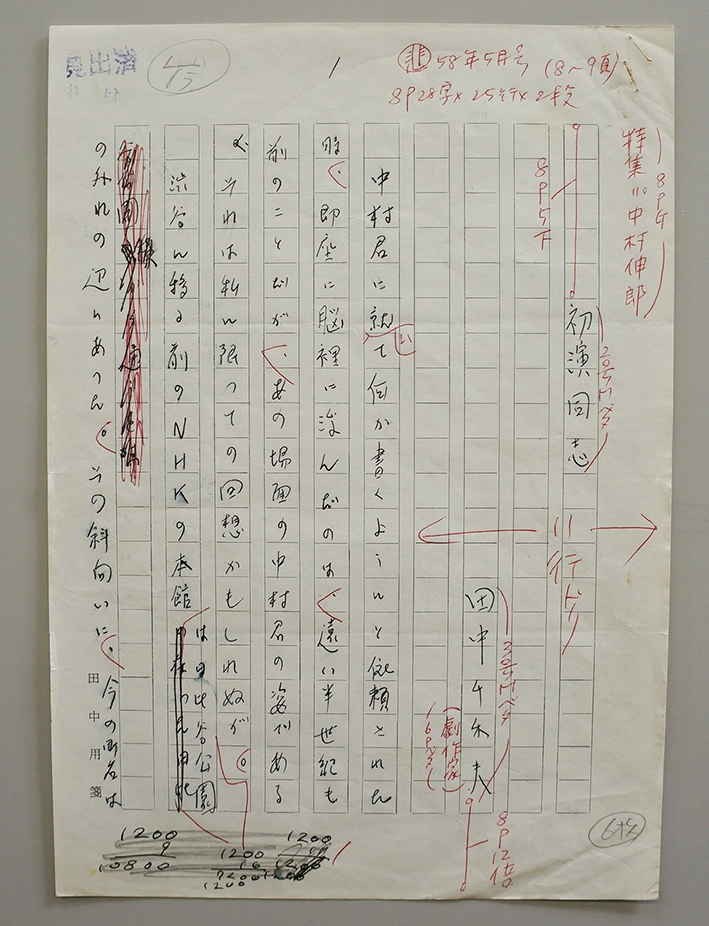 見出済
㊫ 58年5月号 (8〜9頁)
8P28字×25行×2段
特集Ⅲ・中村伸郎
8P下
初演同志
2号Mベタ
8P5下
11行ドリ
田中千禾夫
3号Mベタ
(劇作家)
8P12倍
中村君に就いて何か書くようにと依頼された
時、即座に脳裡に浮んだのは、遠い半世紀も
前のことだが、あの場面の中村君の姿である
が、それは私に限っての回想かもしれぬが。
渋谷に移る前のNHKの本館は日比谷公園
の外れの辺にあった。その斜向いに、今の町名は
田中用箋
1200
9
10800
1200
1200
1200
6枚